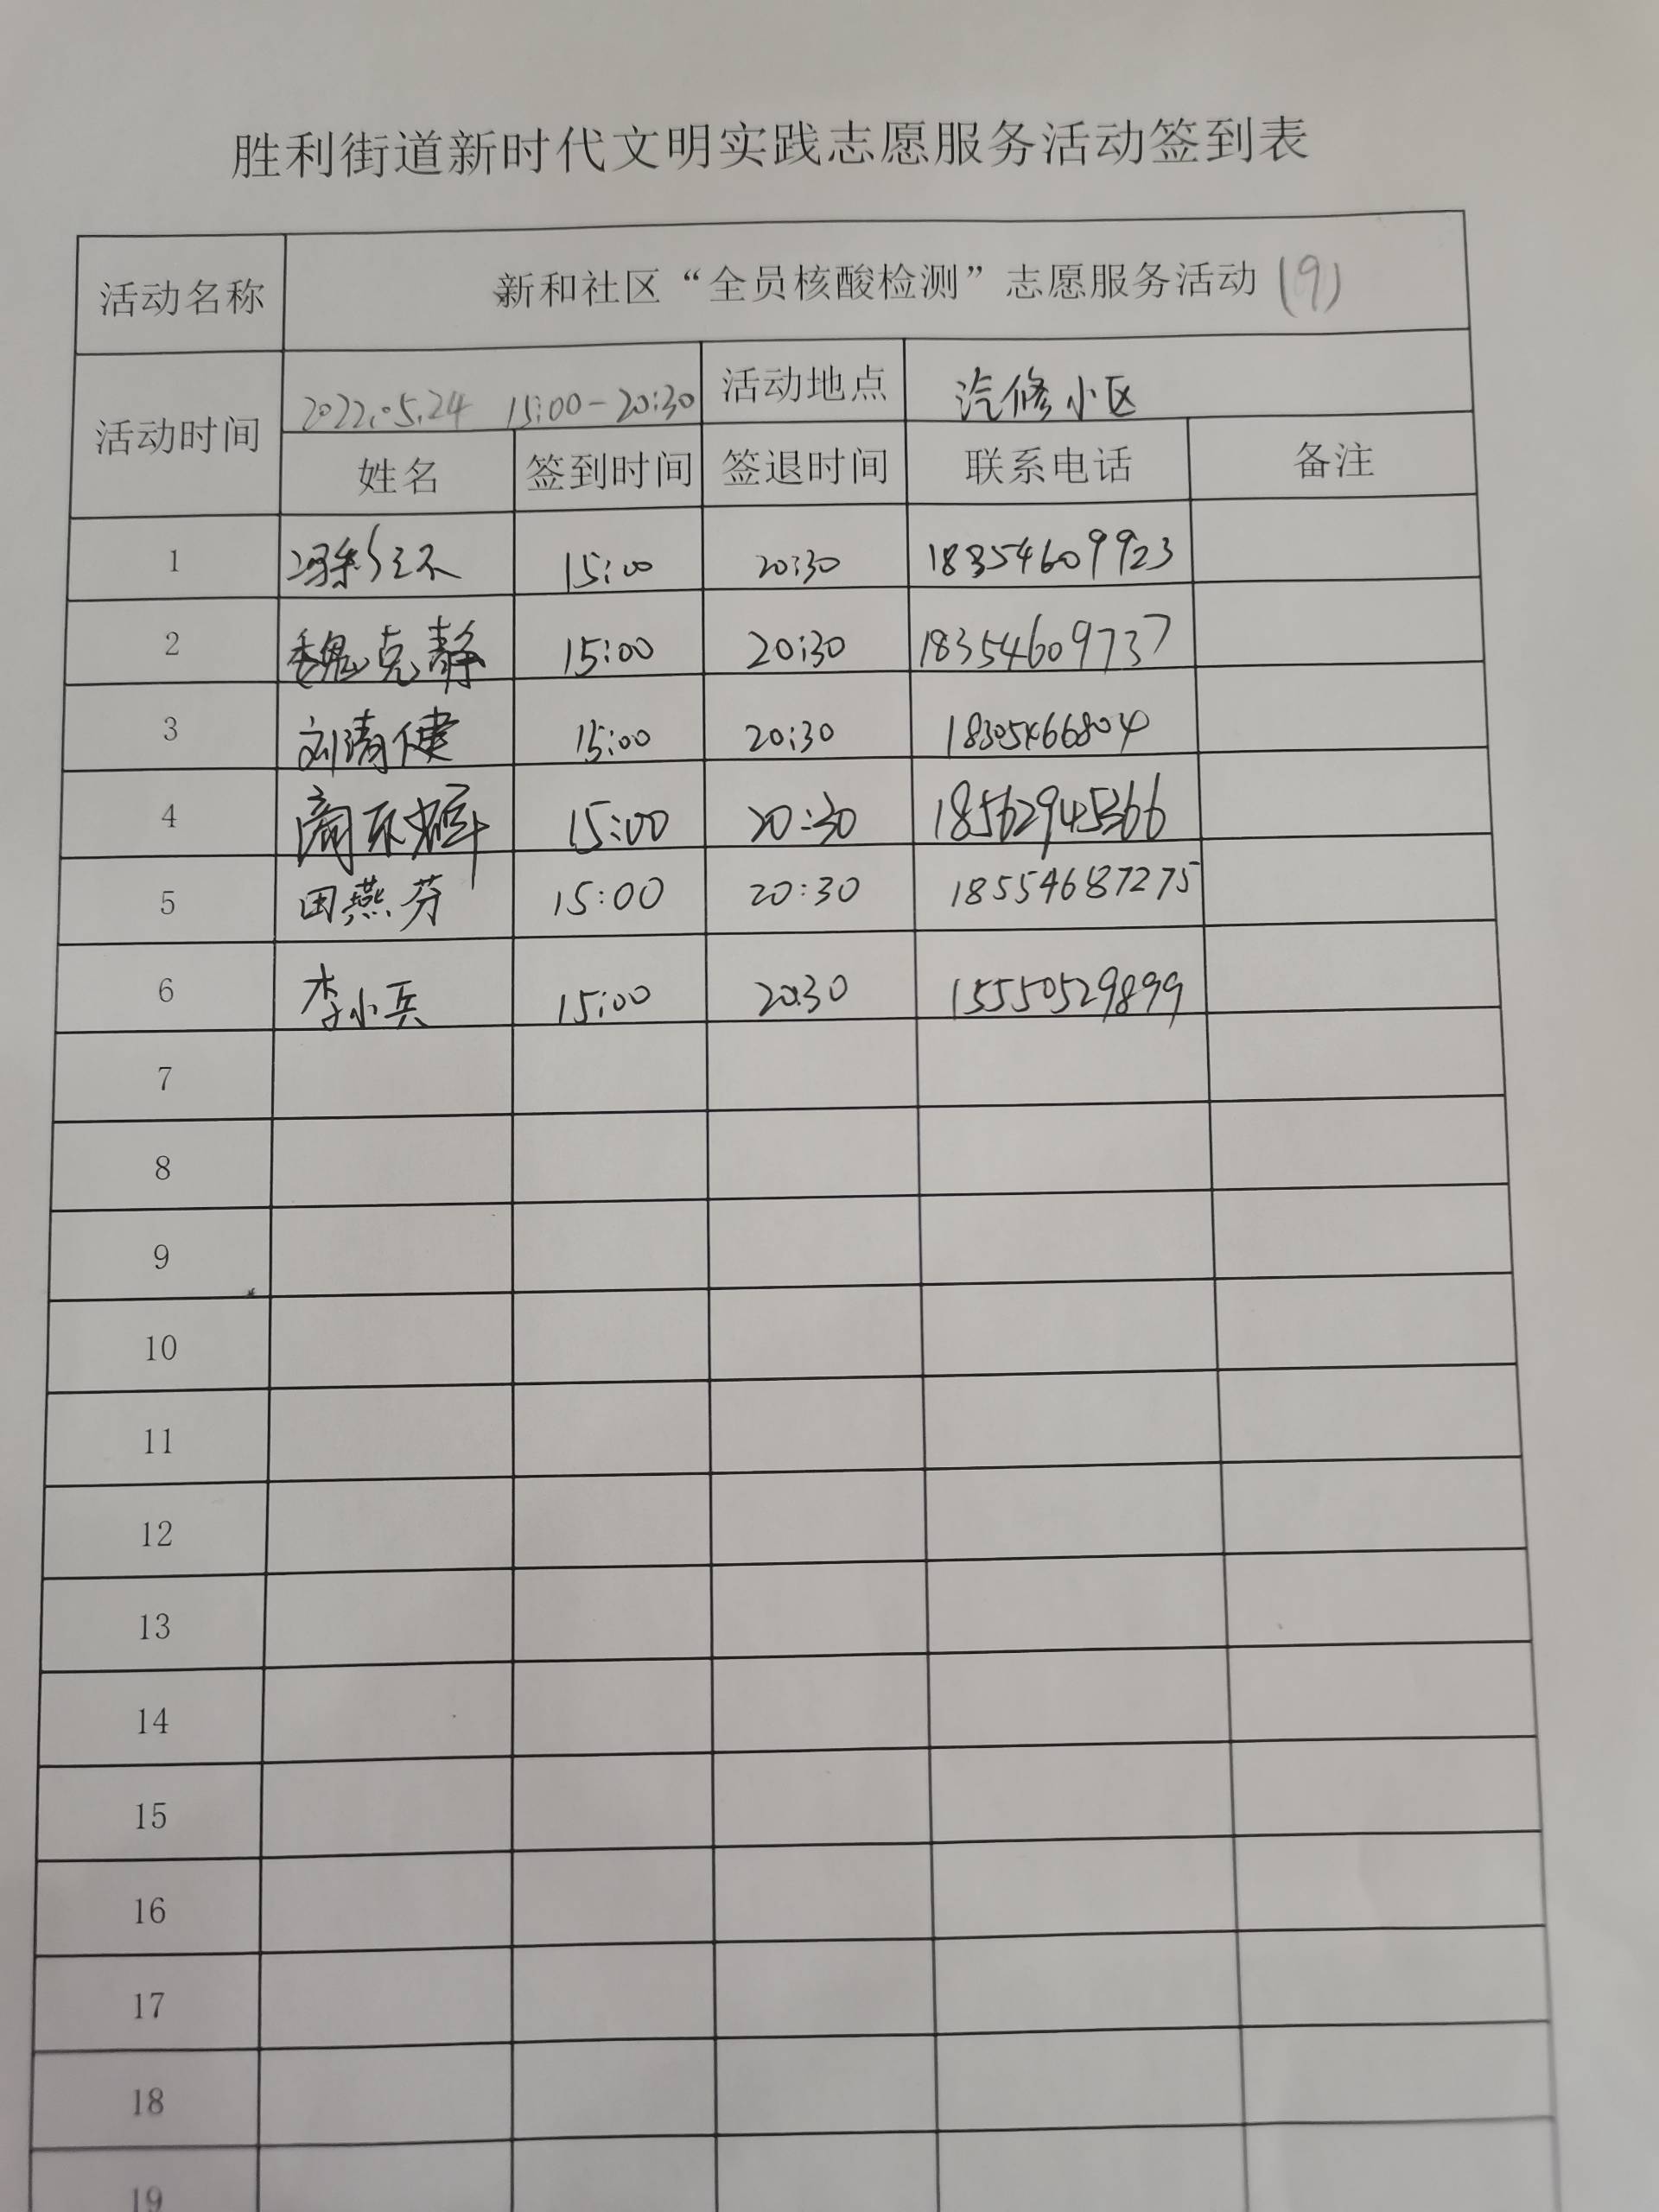 胜利街道新时代文明实践志愿服务活动签到表
活动名称 新和社区“全员核酸检测”志愿服务活动(9)
活动时间 2022.05.24 15:00-20:30 活动地点 汽修小区
姓名 签到时间 签退时间 联系电话 备注
1 15:00 20:30 18354609923
2 魏克静 15:00 20:30 18354609737
3 刘清健 15:00 20:30 18305466804
4 15:00 20:30 18562945366
5 田燕芬 15:00 20:30 18554687275
6 李小兵 15:00 20:30 15550529899
7
8
9
10
11
12
13
14
15
16
17
18
19